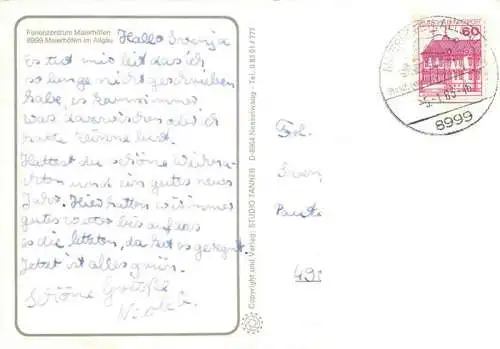 Ferienzentrum Maierhöfen
8999 Maierhöfen im Allgäu
Hallo Svenja
es tut mir leid das ich
so lange nicht geschrieben
habe, es kam immer
was dazwischen oder ich
hatte keine lust.
Hattest du schöne Weihna-
chten und ein gutes neues
Jahr. Hier hatten wir immer
gutes weter bis auf das
es die letzten, da hat es geregnet.
Jetzt ist alles grün.
Schöne Grüße
Nicole
Copyright und Verlag: STUDIO TANNER D-8964 Nesselwang
DEUTSCHE BUNDESPOST
60
8999
Frl.
Sven